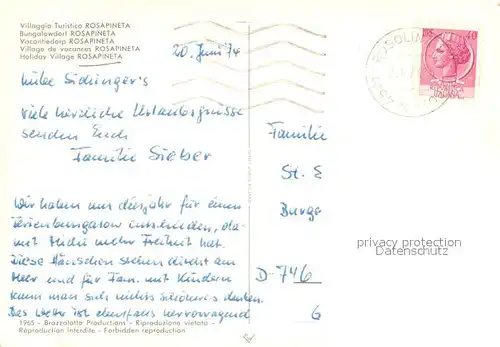 Villaggio Turistico ROSAPINETA
Bungalowdorf ROSAPINETA
Vacantiedorp ROSAPINETA
Village de vacances ROSAPINETA
Holiday Village ROSAPINETA
20. Juni 74
Liebe Sidinger's
viele herzliche Urlaubsgrüsse
senden Euch
Familie Sieber
Wir haben uns diesjahr für einen
Ferienbungalow entschieden, da-
mit Heidi mehr Freiheit hat.
Diese Häuschen stehen direkt am
Meer und für Fam. mit Kindern
kann man sich nichts schöneres denken.
Das Wetter ist ebenfalls hervorragend
1965 - Brazzolotto Productions - Riproduzione vietata -
Reproduction interdite - Forbidden reproduction
40
Familie
St.
Burga
D-746
G
privacy protection
Datenschutz